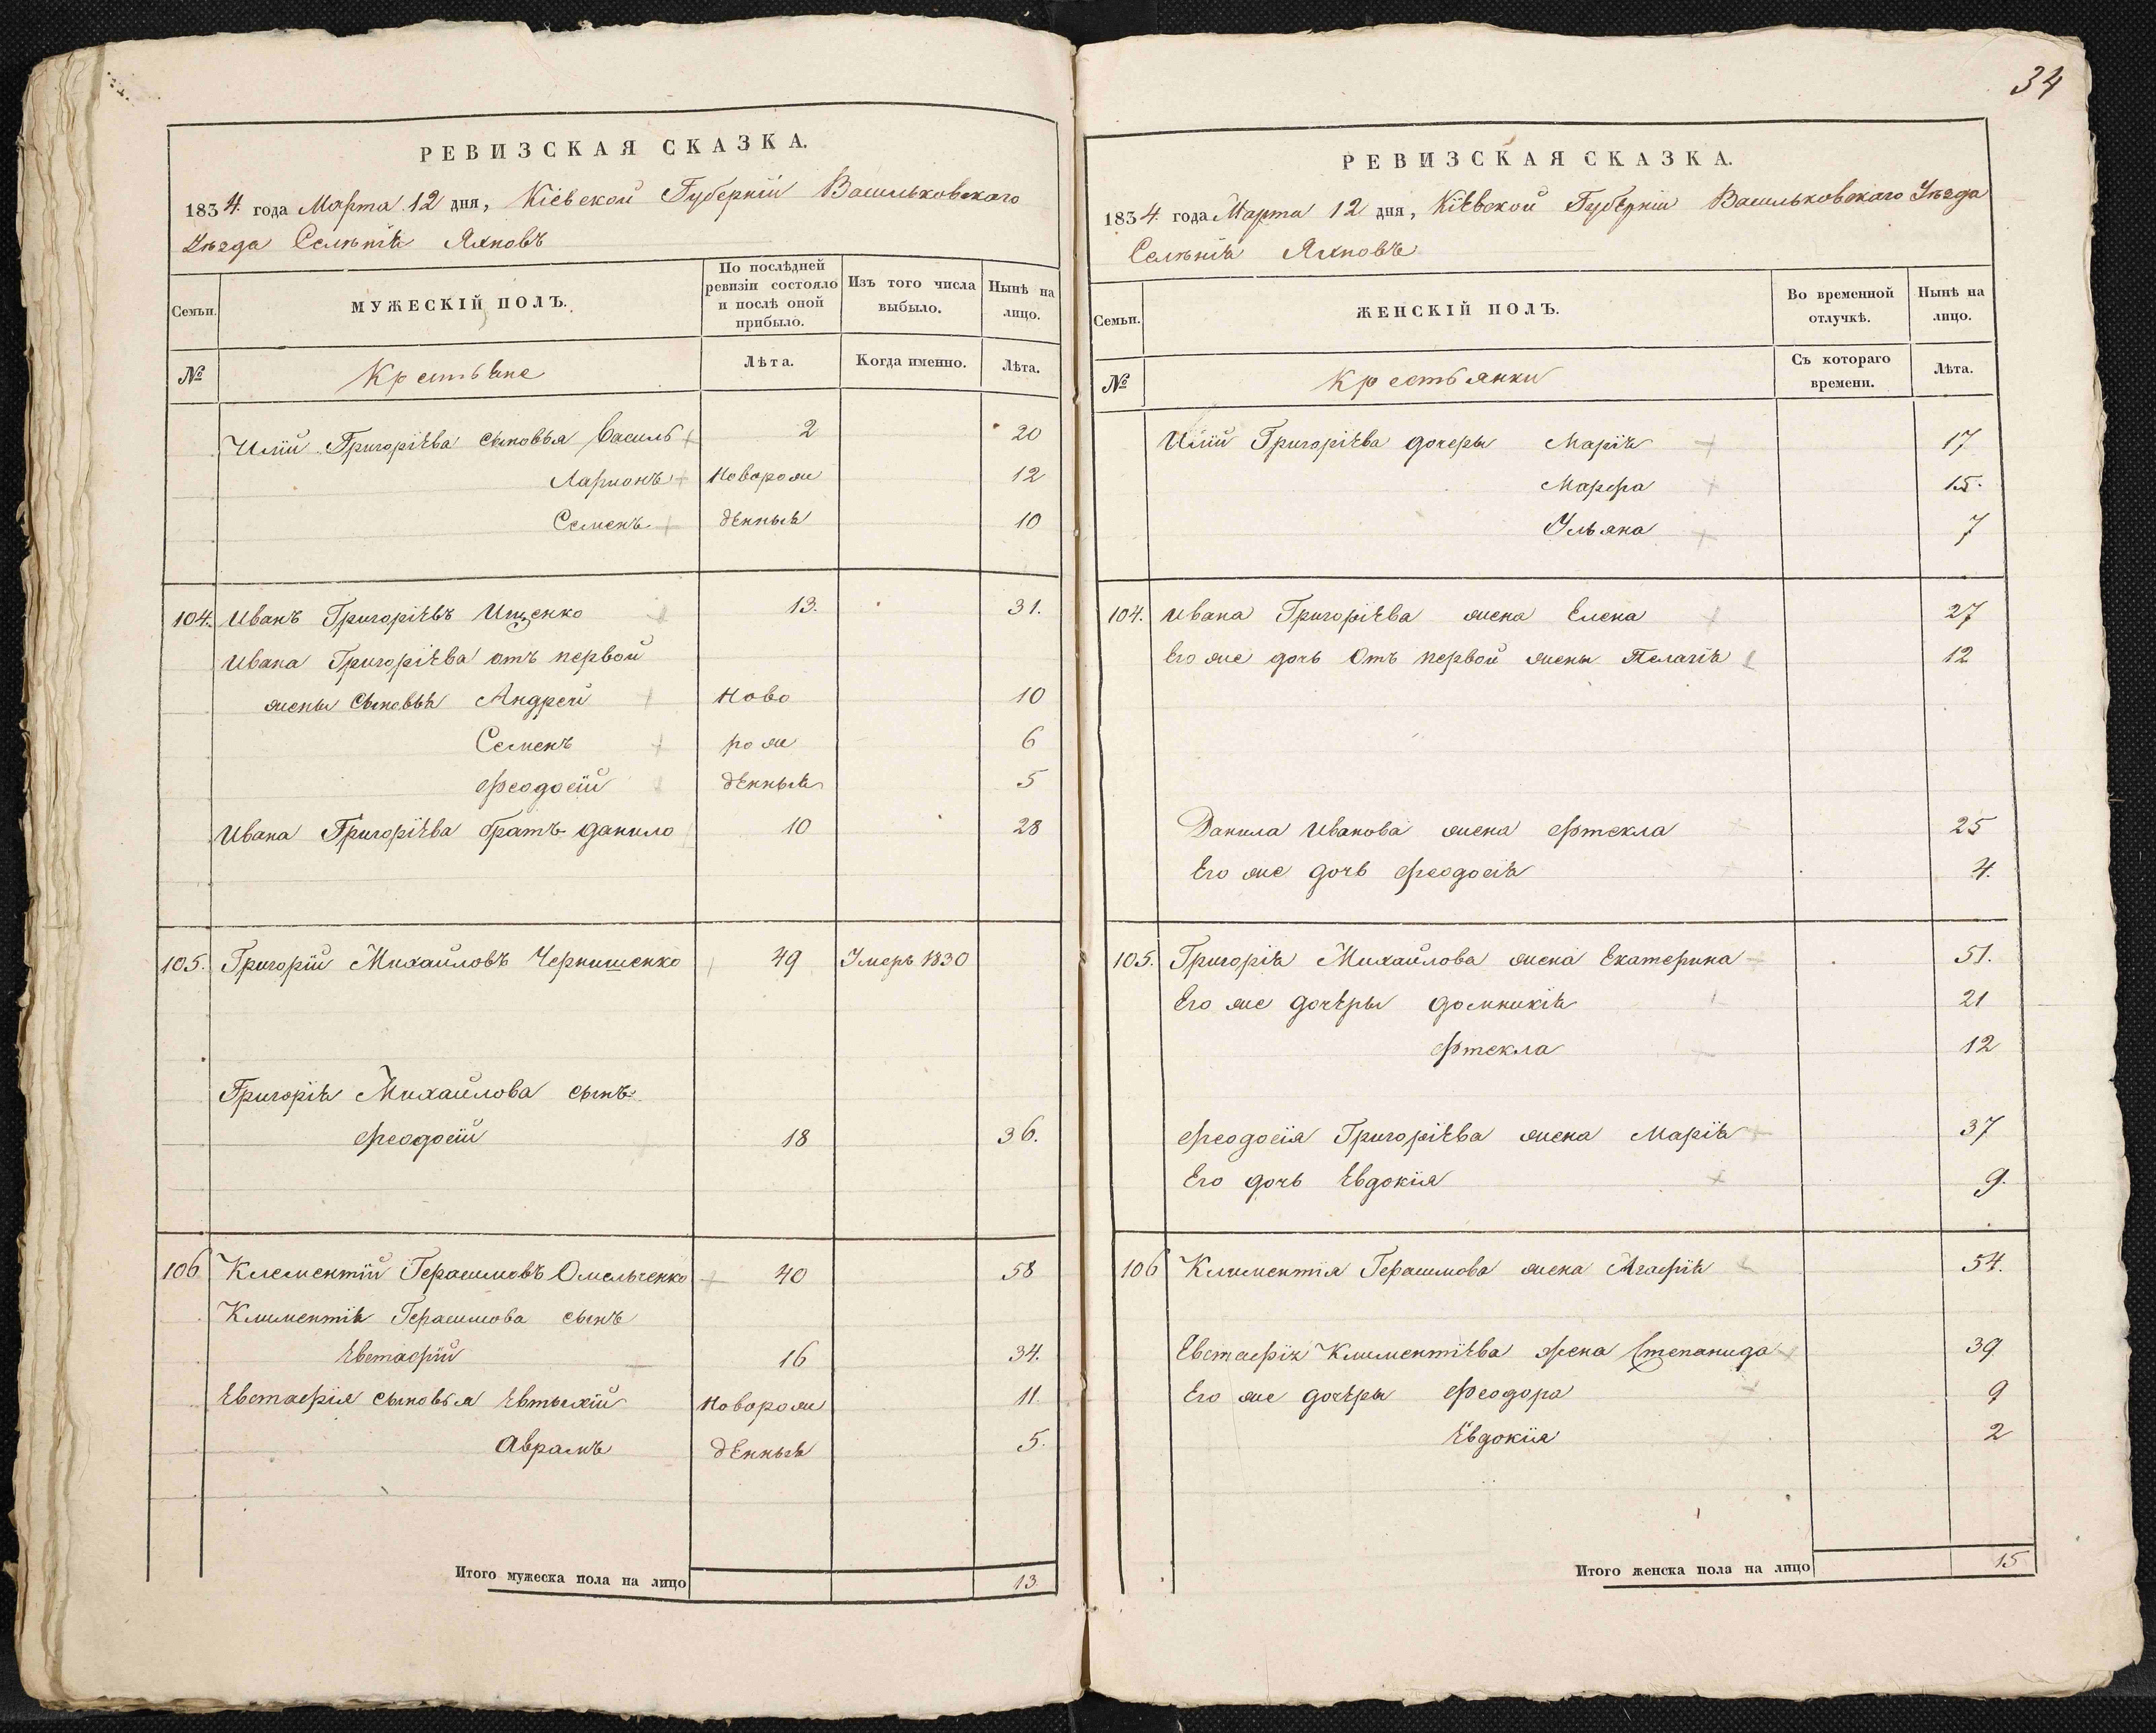 34
РЕВИЗСКАЯ СКАЗКА.
1834 года Марта 12 дня, Кіевской Губерніи Васильковскаго
Уѣзда Селенія Яхновъ
Семьи. МУЖЕСКІЙ ПОЛЪ. По послѣдней ревизіи состояло и послѣ оной прибыло. Изъ того числа выбыло. Нынѣ на лицо.
№ Крестьяне Лѣта. Когда именно. Лѣта.
Иліи Григоріева сыновья Василь 2 20
ЛарионъИиоворож 12
Семенъ денныя 10
104. Иванъ Григоріевъ Ищенко 13. 31.
Ивана Григоріева отъ первой
жены сыновья Андрей Ново 10
Семенъ рож 6
Феодосій денныя 5
Ивана Григоріева братъ Данило 10 28
105. Григорій Михайловъ Чернишенко 49 Умеръ 1830
Григорія Михайлова сынъ
Феодосій 18 36.
106 Клементій Герасимовъ Омельченко 40 58
Климентія Герасимова сынъ
Евстафій 16 34.
Евстафія сыновья Евтыхій Новорож 11.
Аврамъ денныя 5.
Итого мужеска пола на лицо 13
РЕВИЗСКАЯ СКАЗКА.
1834 года Марта 12 дня, Кіевской Губерніи Васильковскаго Уѣзда
Селенія Яхновъ
Семьи. ЖЕНСКІЙ ПОЛЪ. Во временной отлучкѣ. Нынѣ на лицо.
№ Крестьянки Съ котораго времени. Лѣта.
Иліи Григоріева дочеры Марія 17
Марфа 15.
Ульяна 7
104. Ивана Григоріева жена Елена 27
Его же дочь Отъ первой жены Пелагія 12
Данила Иванова жена Фтекла 25
Его же дочь Феодосія 4.
105. Григорія Михайлова жена Екатерина 51.
Его же дочеры Домникія 21
Фтекла 12
Феодосія Григоріева жена Марія 37
Его дочь Евдокія 9.
106 Климентія Герасимова жена Агафія 54.
Евстафія Климентіева жена Степанида 39
Его же дочеры Феодора 9
Евдокія 2
Итого женска пола на лицо 15